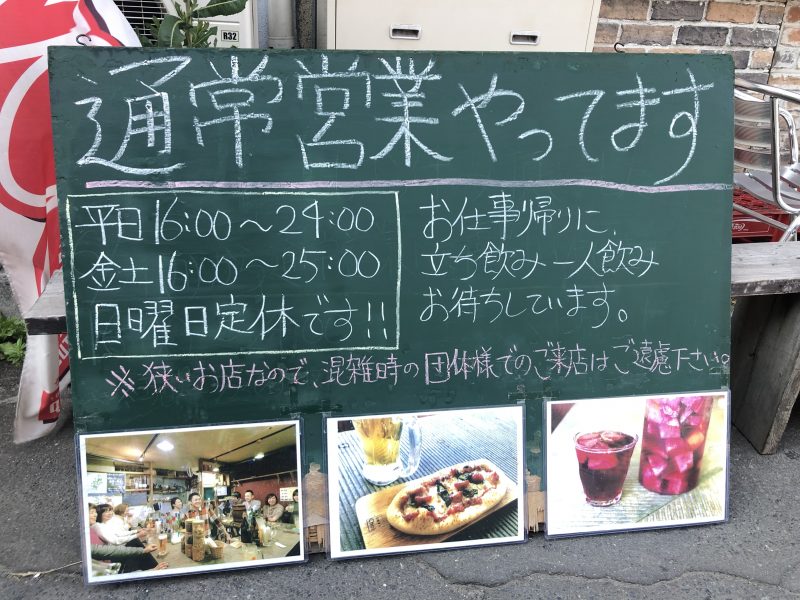 R32
通常営業やってます
平日16:00〜24:00
金土16:00〜25:00
日曜日定休です!!
お仕事帰りに、
立ち飲み一人飲み
お待ちしています。
※狭いお店なので、混雑時の団体様でのご来店はご遠慮下さい。